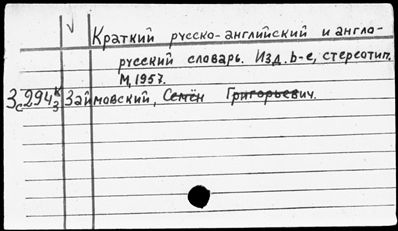 Краткий русско-английский и англо-
русский словарь. Изд. 6-е, стереотип.
М, 1957.
Займовский, Семён Григорьевич.